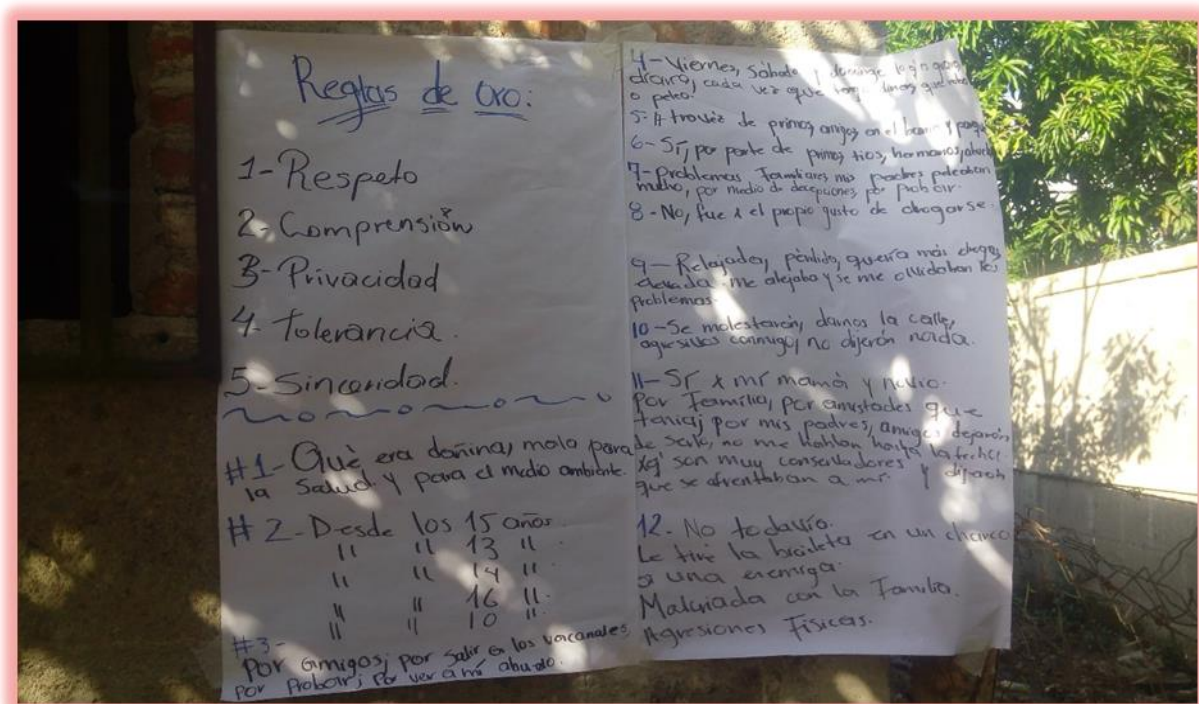 Reglas de oro:
1-Respeto
2-Comprensión
3-Privacidad
4-Tolerancia.
5-Sinceridad.
#1-Què era dañina, malo para
la Salud y para el medio ambiente.
#2-Desde los 15 años.
" " 13 ".
" " 14 ".
" " 16 ".
" " 10 ".
#3-
Por amigos; por salir a los vacanales
por Probar; por ver a mi abuelo.
4-Viernes, Sábado y domingo
diario, cada vez que
o peleo.
5-A travéz de primos, amigos en el barrio y
6-Sí, por parte de primos, tios, hermanos,
7-Problemas Familiares mis padres peleaban
mucho, por medio de decepciones, por probar.
8-No, fue x el propio gusto de drogarse.
9-Relajada, pérdida, quería más droga,
me alejaba y se me olvidaban los
problemas.
10-Se molestarón, darnos la calle,
agresivos conmigo, no dijerón nada.
11-Sí x mi mamá y novio.
Por Familia, por amistades que
tenia; por mis padres, amigos dejarón
de serlo, no me hablan hasta la fecha
xq' son muy conservadores y
que se afrentaban a mí.
12-No todavía.
Le tiré la bicicleta en un charco
a una enemiga.
Malcriada con la Familia.
Agresiones Físicas.